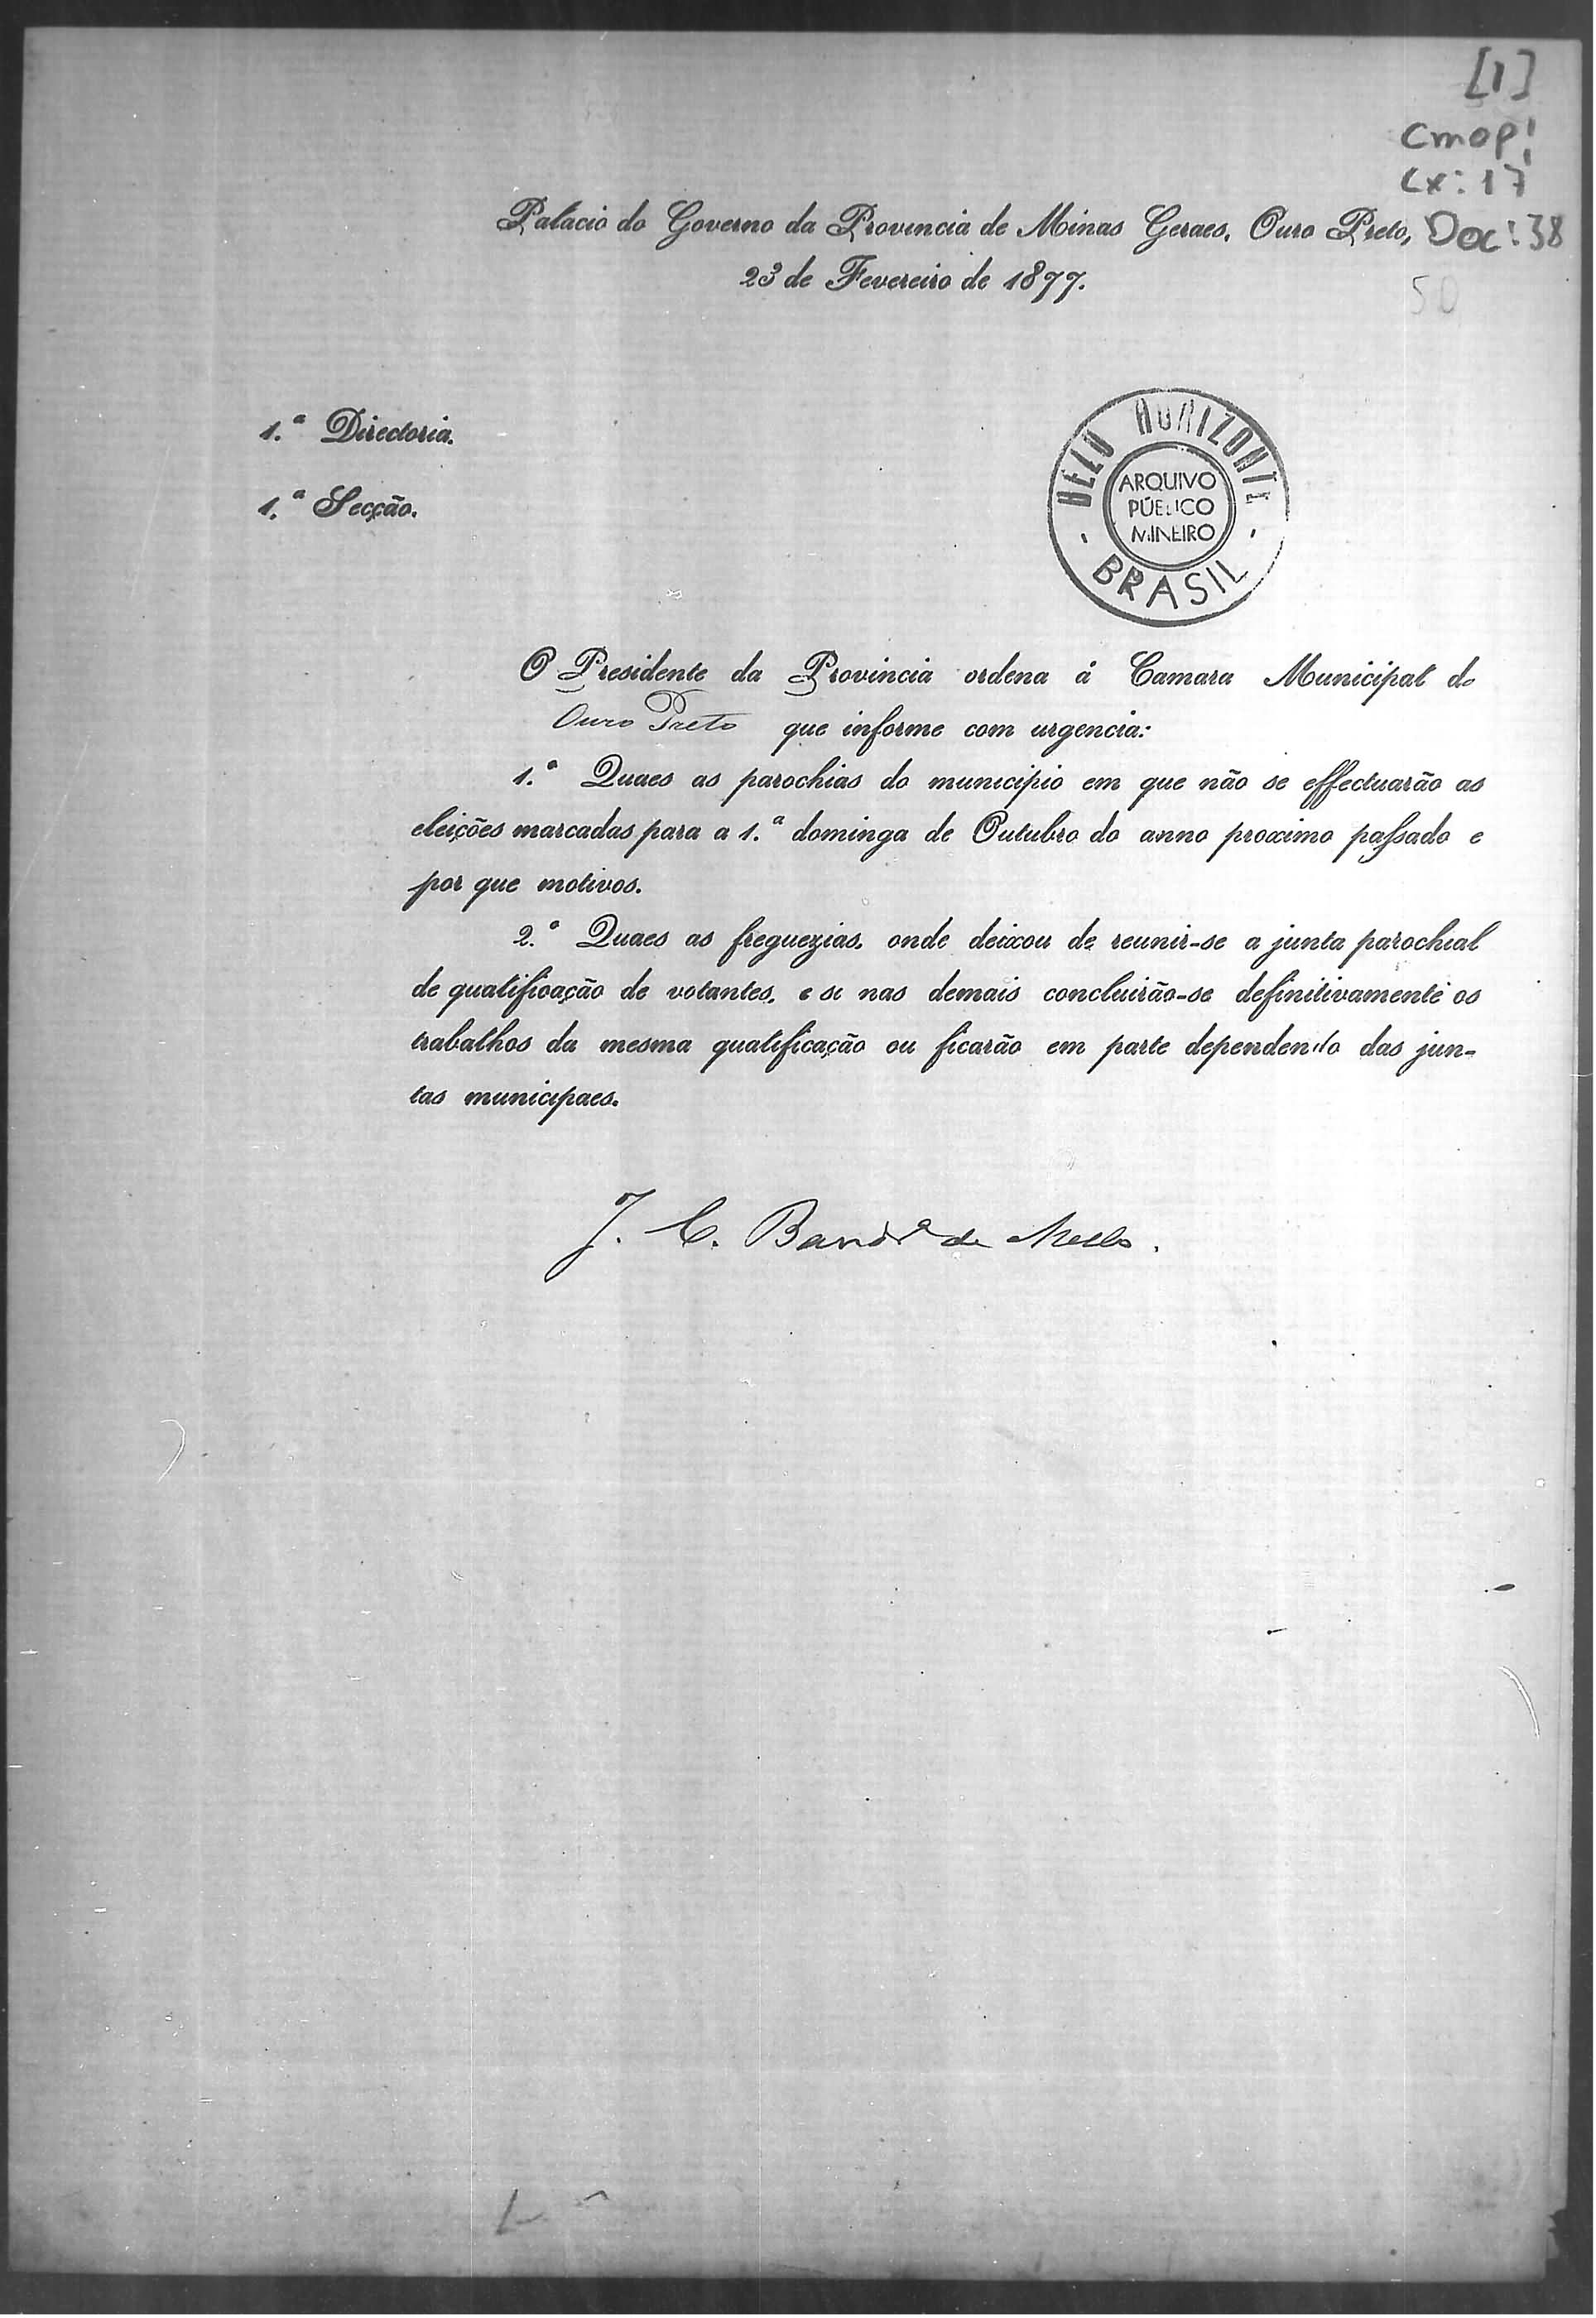 [1]
CMOP:
Cx: 17
Palacio do Governo da Provincia de Minas Geraes, Ouro Preto, Doc: 38
23 de Fevereiro de 1877.
50
1.ª Directoria.
1.ª Secção.
BELO HORIZONTE
ARQUIVO
PÚBLICO
MINEIRO
BRASIL
O Presidente da Provincia ordena á Camara Municipal do
Ouro Preto que informe com urgencia:
1.º Quaes as parochias do municipio em que não se effectuarão as
eleições marcadas para a 1.ª dominga de Outubro do anno proximo passado e
por que motivos.
2.º Quaes as freguezias, onde deixou de reunir-se a junta parochial
de qualificação de votantes, e se nas demais concluirão-se definitivamente os
trabalhos da mesma qualificação ou ficarão em parte dependendo das jun-
tas municipaes.
J. C. Bandr.ª de Mello.